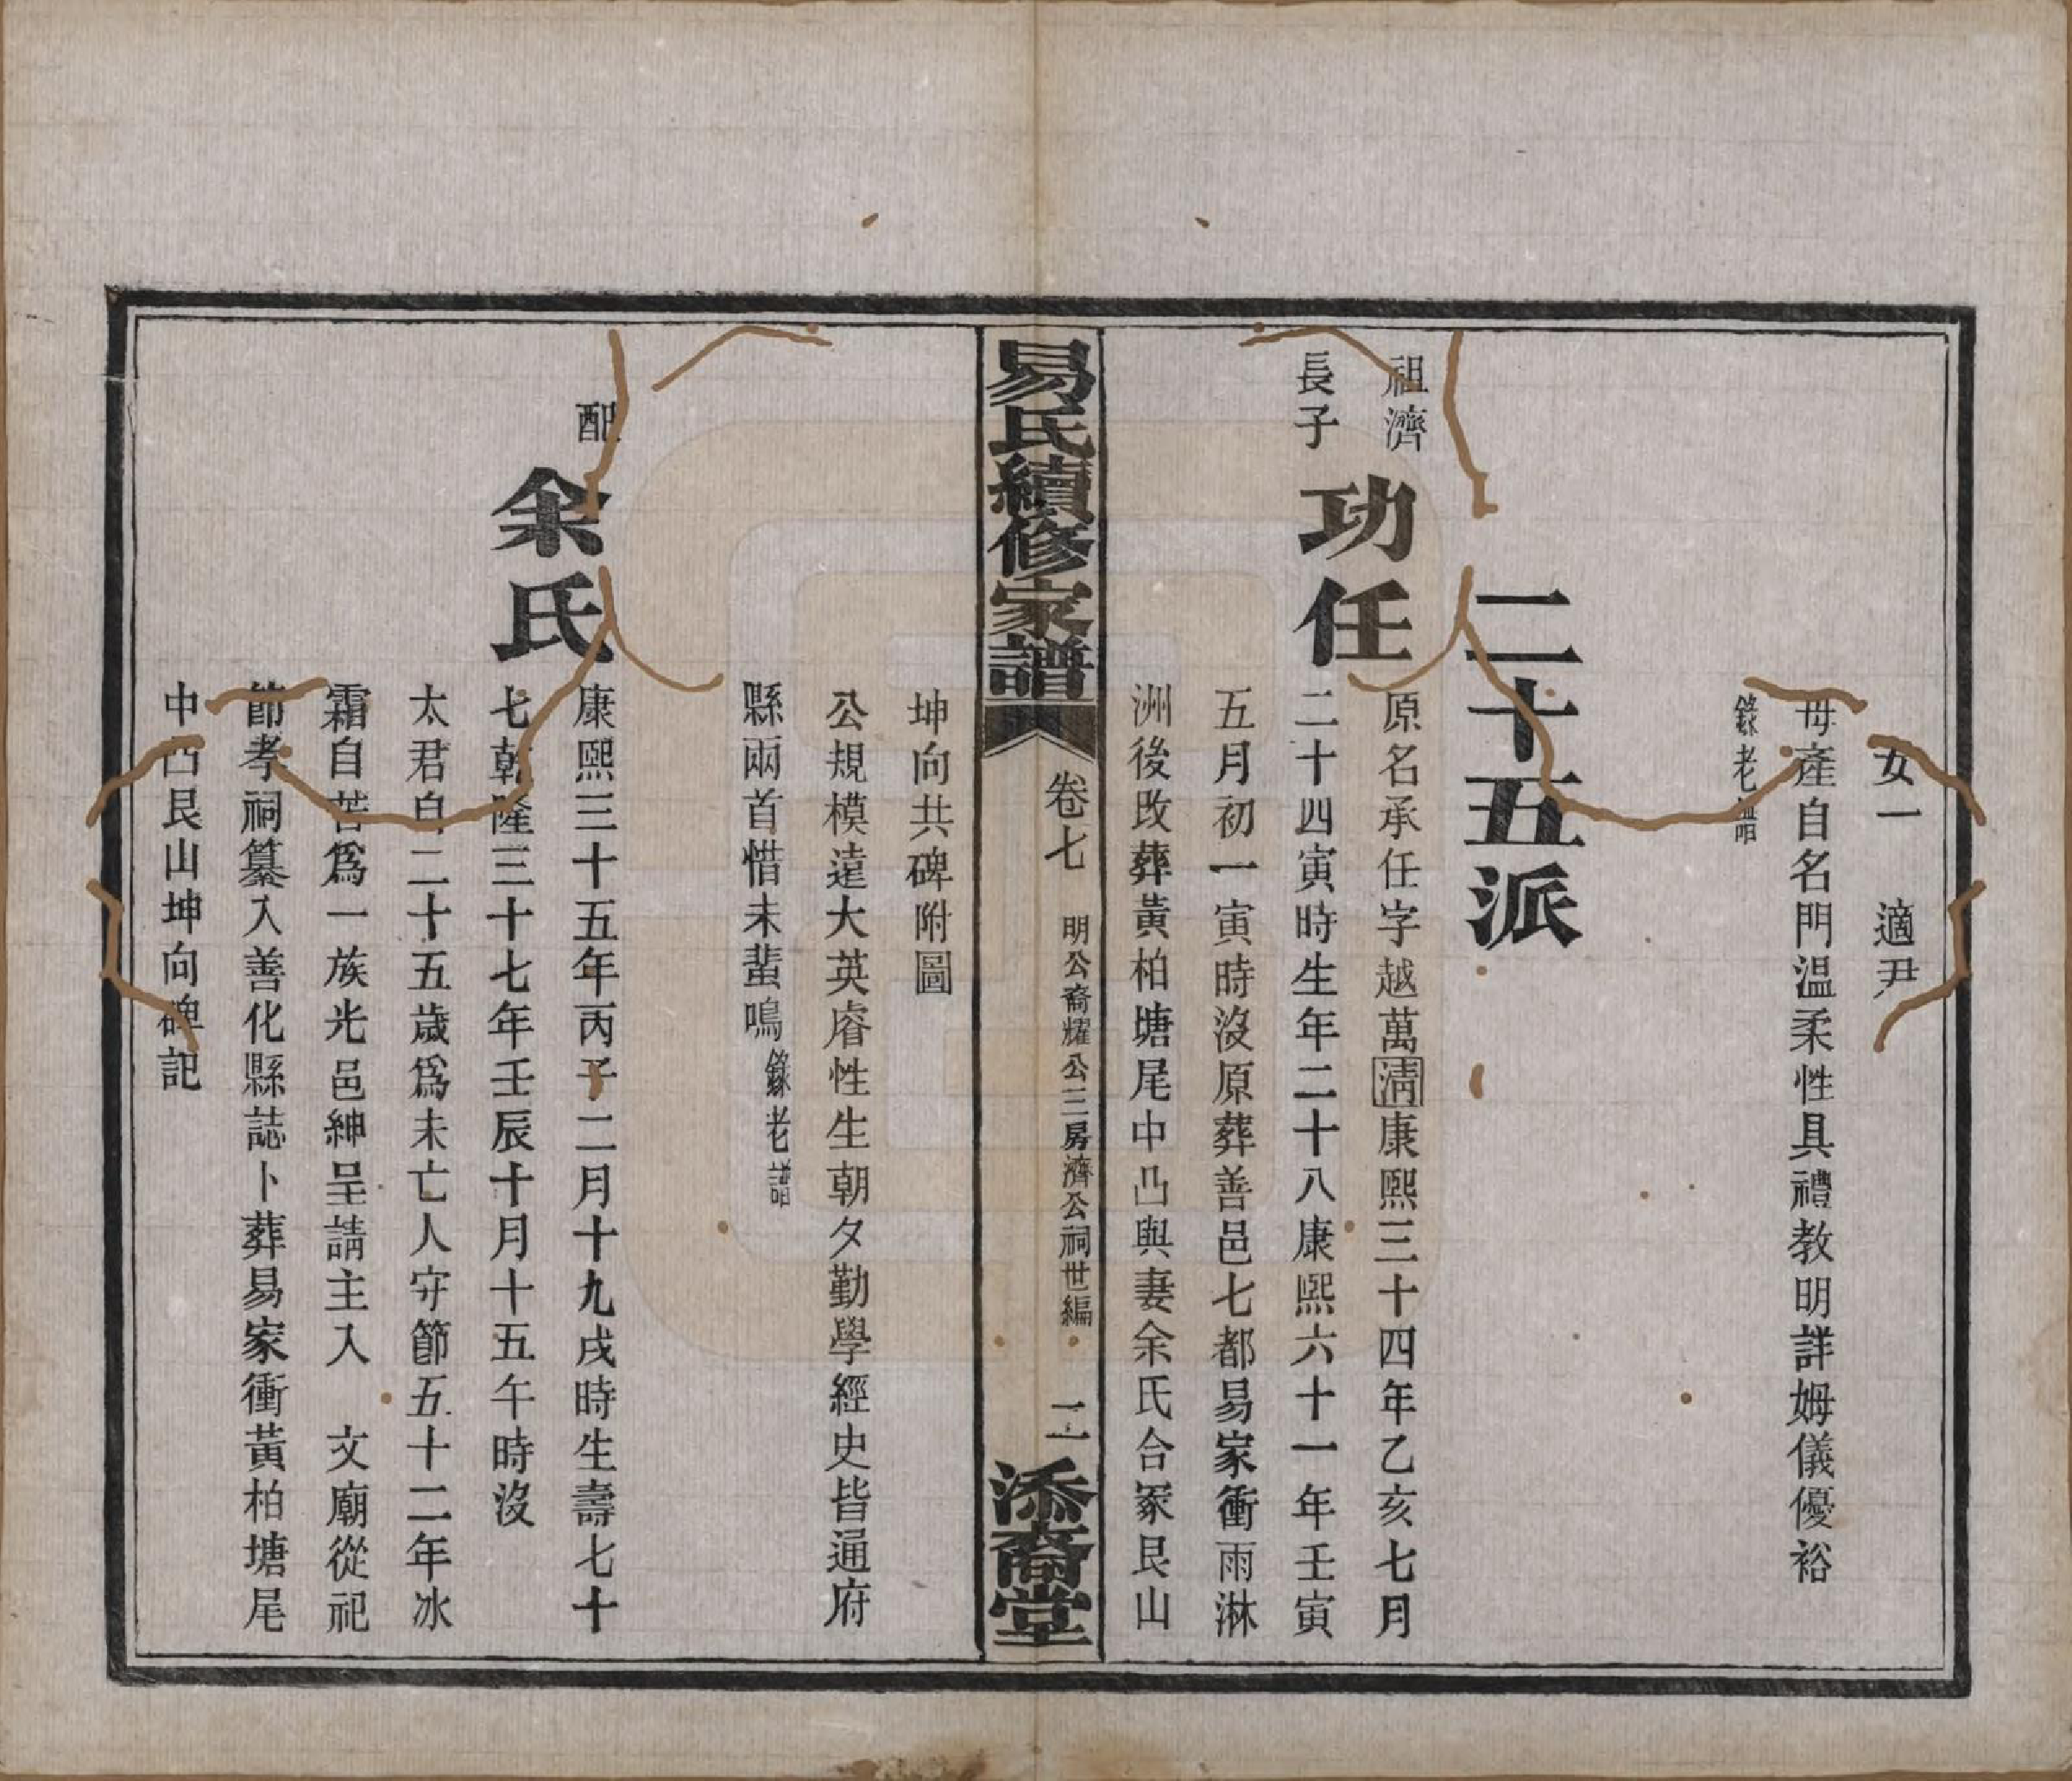 女一　適尹
母產自名門溫柔性具禮教明詳姆儀優裕
錄老譜
二十五派
祖濟
長子
功任
原名承任字越萬清康熙三十四年乙亥七月
二十四寅時生年二十八康熙六十一年壬寅
五月初一寅時沒原葬善邑七都易家衝雨淋
洲後改葬黃柏塘尾中凸與妻余氏合冢艮山
易氏續修家譜
卷七　明公裔耀公三房濟公祠世編　二
添裔堂
坤向共碑附圖
公規模遠大英睿性生朝夕勤學經史皆通府
縣兩首惜未蜚鳴錄老譜
配
余氏
康熙三十五年丙子二月十九戌時生壽七十
七乾隆三十七年壬辰十月十五午時沒
太君自二十五歲爲未亡人守節五十二年冰
霜自苦爲一族光邑紳呈請主入　文廟從祀
節孝祠纂入善化縣誌卜葬易家衝黃柏塘尾
中凸艮山坤向碑記